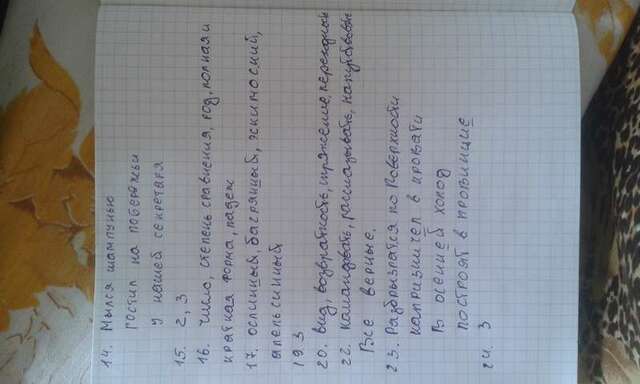 14. Мылся шампунью
гостил на побережьи
у нашей секретаря
15. 2, 3
16. число, степень сравнения, род, полная и
краткая форма, падеж
17. ослинный, багрянный, эскимоский,
апельсинный
19 3
20. вид, возвратность, спряжение, переходность
22. командовать, рассказывать, напутствовать
Все верные.
23. Разбрызгатся по Поверхности
капризничел в кровати
В осенией холод
построят в провинцие
24. 3